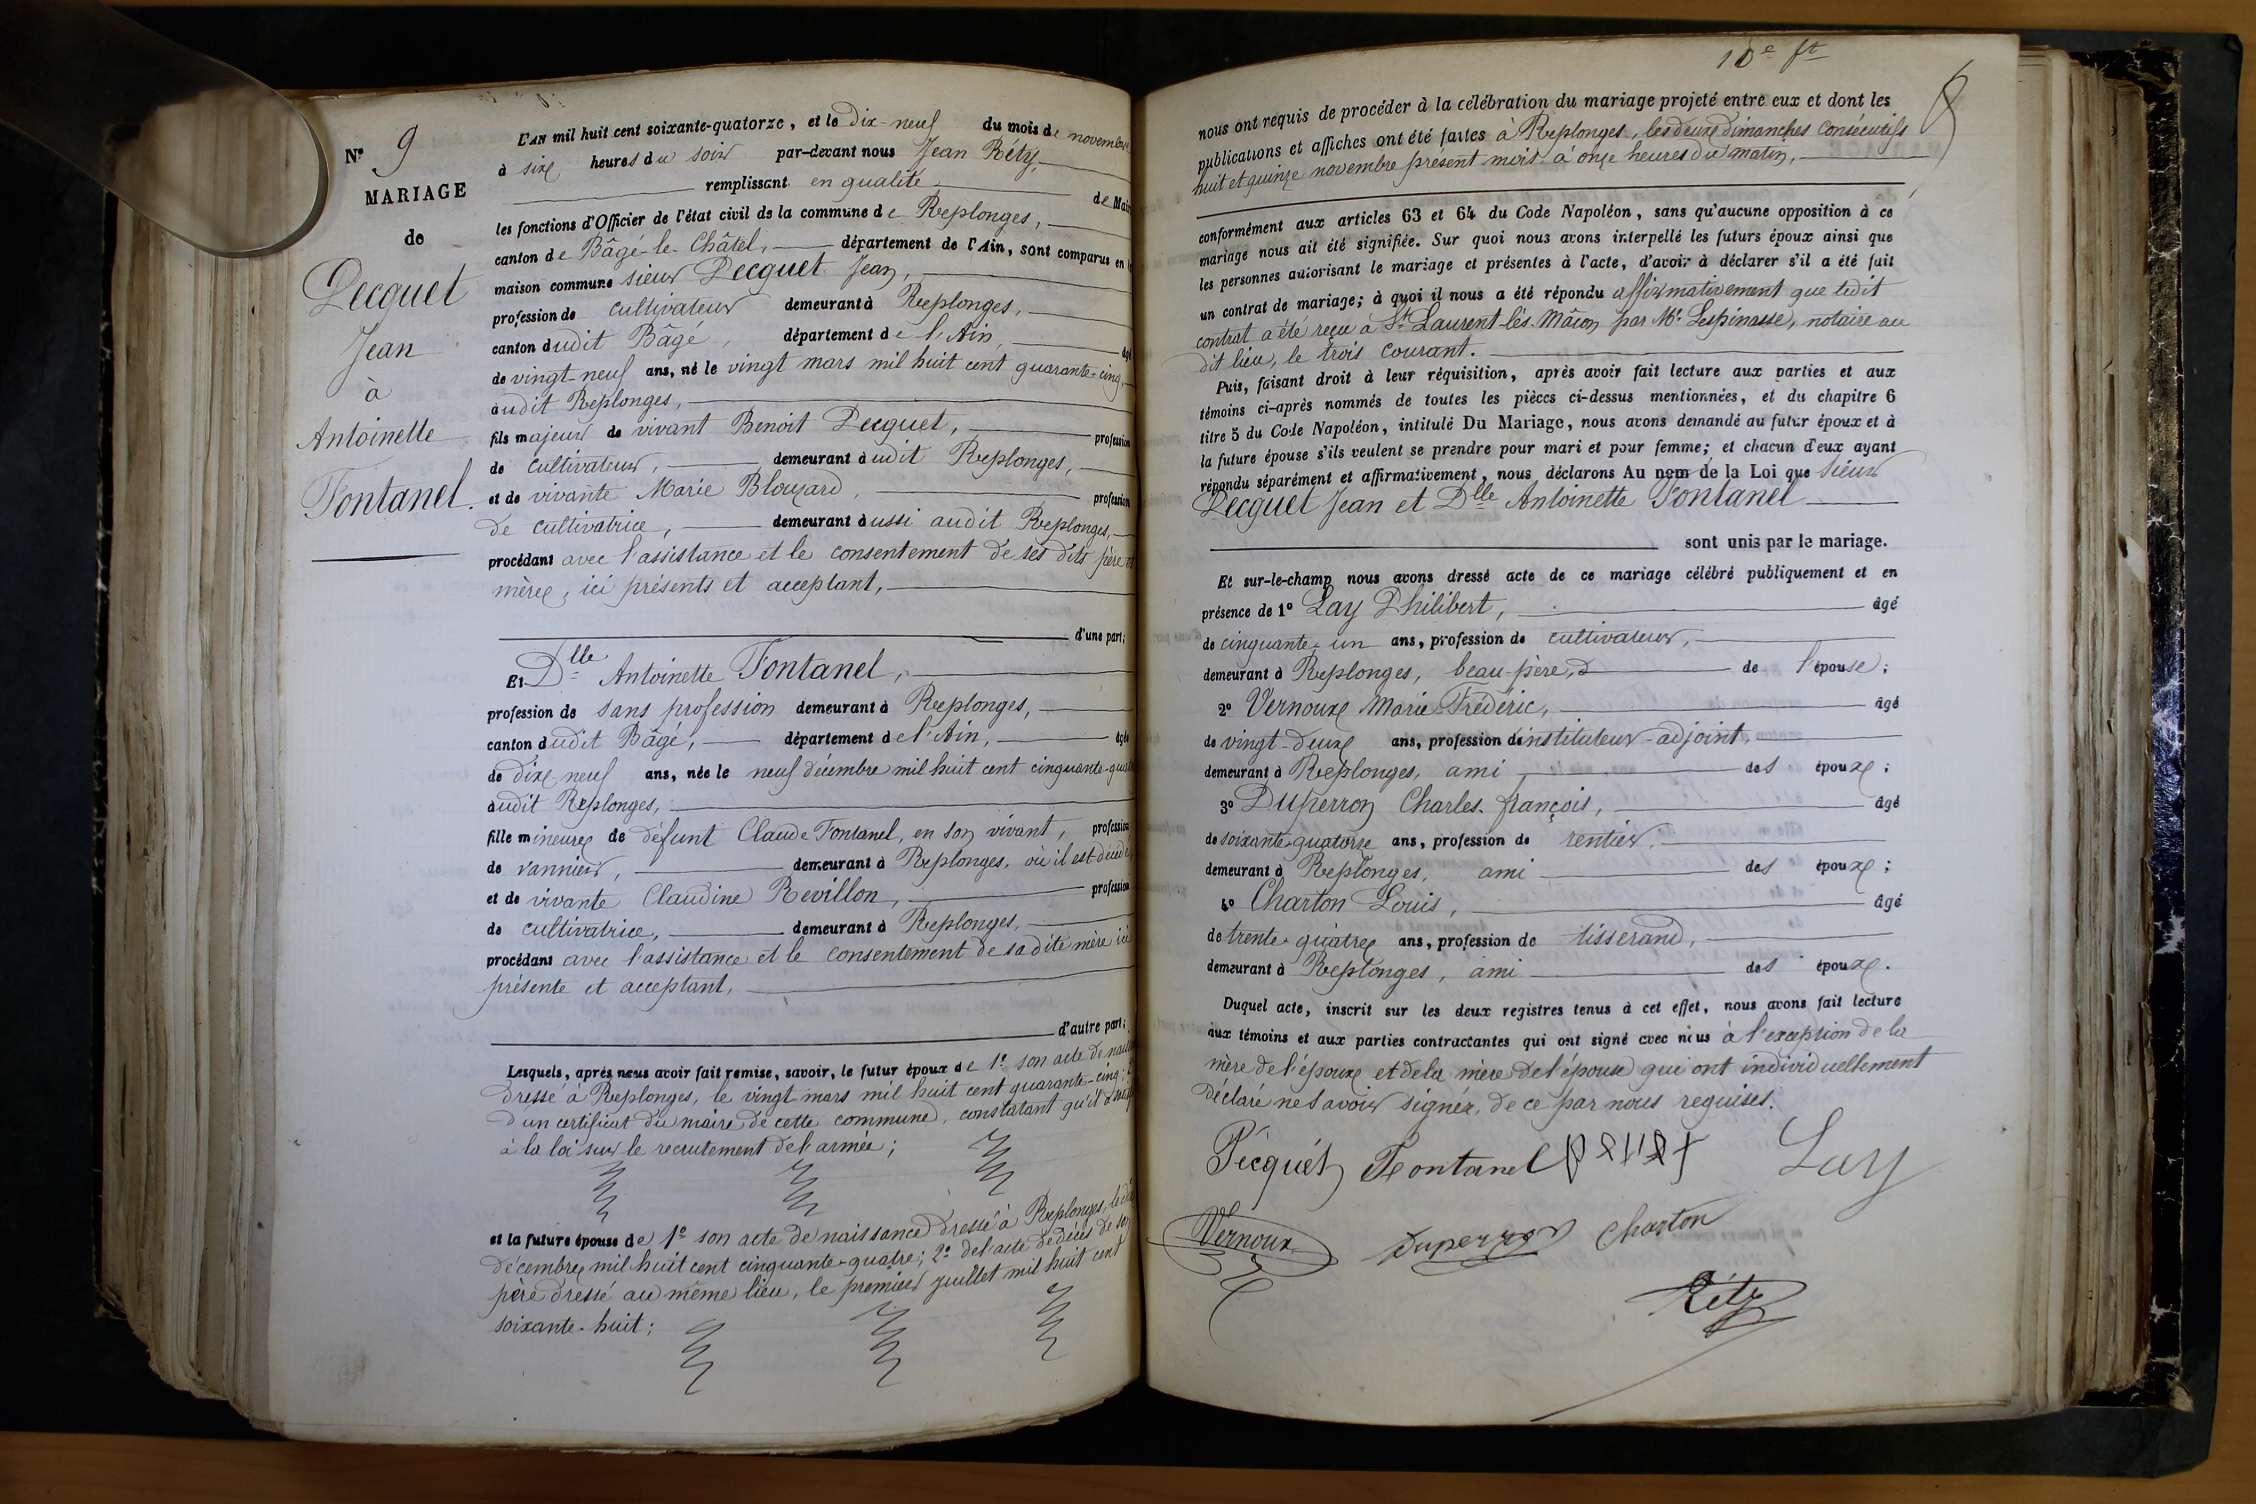 Nº 9
MARIAGE
de
Pecquet
Jean
à
Antoinette
Fontanel.
L'AN mil huit cent soixante-quatorze, et le dix-neuf du mois de novembre
à six heures du soir par-devant nous Jean Réty,
remplissant en qualité de Mai
les fonctions d'Officier de l'état civil de la commune de Replonges,
canton de Bâgé-le-Châtel, département de l'Ain, sont comparus en la
maison commune sieur Pecquet Jean,
profession de cultivateur demeurant à Replonges,
canton dudit Bâgé, département de l'Ain, âgé
de vingt-neuf ans, né le vingt mars mil huit cent quarante-cinq,
audit Replonges,
fils majeur de vivant Benoit Pecquet, profession
de cultivateur, demeurant audit Replonges,
et de vivante Marie Blouzard, profession
de cultivatrice, demeurant aussi audit Replonges,
procédant avec l'assistance et le consentement de ses dits père et
mère, ici présents et acceptant,
d'une part;
Et Dlle Antoinette Fontanel,
profession de sans profession demeurant à Replonges,
canton dudit Bâgé, département de l'Ain, âgée
de dix-neuf ans, née le neuf décembre mil huit cent cinquante-quatre
audit Replonges,
fille mineure de défunt Claude Fontanel, en son vivant, profession
de vannier, demeurant à Replonges, où il est décédé,
et de vivante Claudine Revillon, profession
de cultivatrice, demeurant à Replonges,
procédant avec l'assistance et le consentement de sa dite mère ici
présente et acceptant,
d'autre part;
Lesquels, après nous avoir fait remise, savoir, le futur époux de 1º son acte de naissance
dressé à Replonges, le vingt mars mil huit cent quarante-cinq;
d'un certificat du maire de cette commune, constatant qu'il a satisfait
à la loi sur le recrutement de l'armée;
et la future épouse de 1º son acte de naissance dressé à Replonges, le dix
décembre mil huit cent cinquante-quatre; 2º de l'acte de décès de son
père dressé au même lieu, le premier juillet mil huit cent
soixante-huit;
10e ft
nous ont requis de procéder à la célébration du mariage projeté entre eux et dont les
publications et affiches ont été faites à Replonges, les deux dimanches consécutifs
huit et quinze novembre présent mois à onze heures du matin,
conformément aux articles 63 et 64 du Code Napoléon, sans qu'aucune opposition à ce
mariage nous ait été signifiée. Sur quoi nous avons interpellé les futurs époux ainsi que
les personnes autorisant le mariage et présentes à l'acte, d'avoir à déclarer s'il a été fait
un contrat de mariage; à quoi il nous a été répondu affirmativement que ledit
contrat a été reçu à St Laurent-lès-Mâcon par Me Lespinasse, notaire au
dit lieu, le trois courant.
Puis, faisant droit à leur réquisition, après avoir fait lecture aux parties et aux
témoins ci-après nommés de toutes les pièces ci-dessus mentionnées, et du chapitre 6
titre 5 du Code Napoléon, intitulé Du Mariage, nous avons demandé au futur époux et à
la future épouse s'ils veulent se prendre pour mari et pour femme; et chacun d'eux ayant
répondu séparément et affirmativement, nous déclarons Au nom de la Loi que sieur
Pecquet Jean et Dlle Antoinette Fontanel
sont unis par le mariage.
Et sur-le-champ nous avons dressé acte de ce mariage célébré publiquement et en
présence de 1º Lay Philibert, âgé
de cinquante-un ans, profession de cultivateur,
demeurant à Replonges, beau-père, de l'épouse;
2º Vernoux Marie-Frédéric, âgé
de vingt-deux ans, profession d'instituteur-adjoint,
demeurant à Replonges, ami des époux;
3º Duperron Charles-françois, âgé
de soixante-quatorze ans, profession de rentier,
demeurant à Replonges, ami des époux;
4º Charton Louis, âgé
de trente-quatre ans, profession de tisserand,
demeurant à Replonges, ami des époux.
Duquel acte, inscrit sur les deux registres tenus à cet effet, nous avons fait lecture
aux témoins et aux parties contractantes qui ont signé avec nous à l'exception de la
mère de l'époux et de la mère de l'épouse qui ont individuellement
déclaré ne savoir signer, de ce par nous requises.
Pécquét Fontanel Lay
Vernoux Duperron Charton
Réty